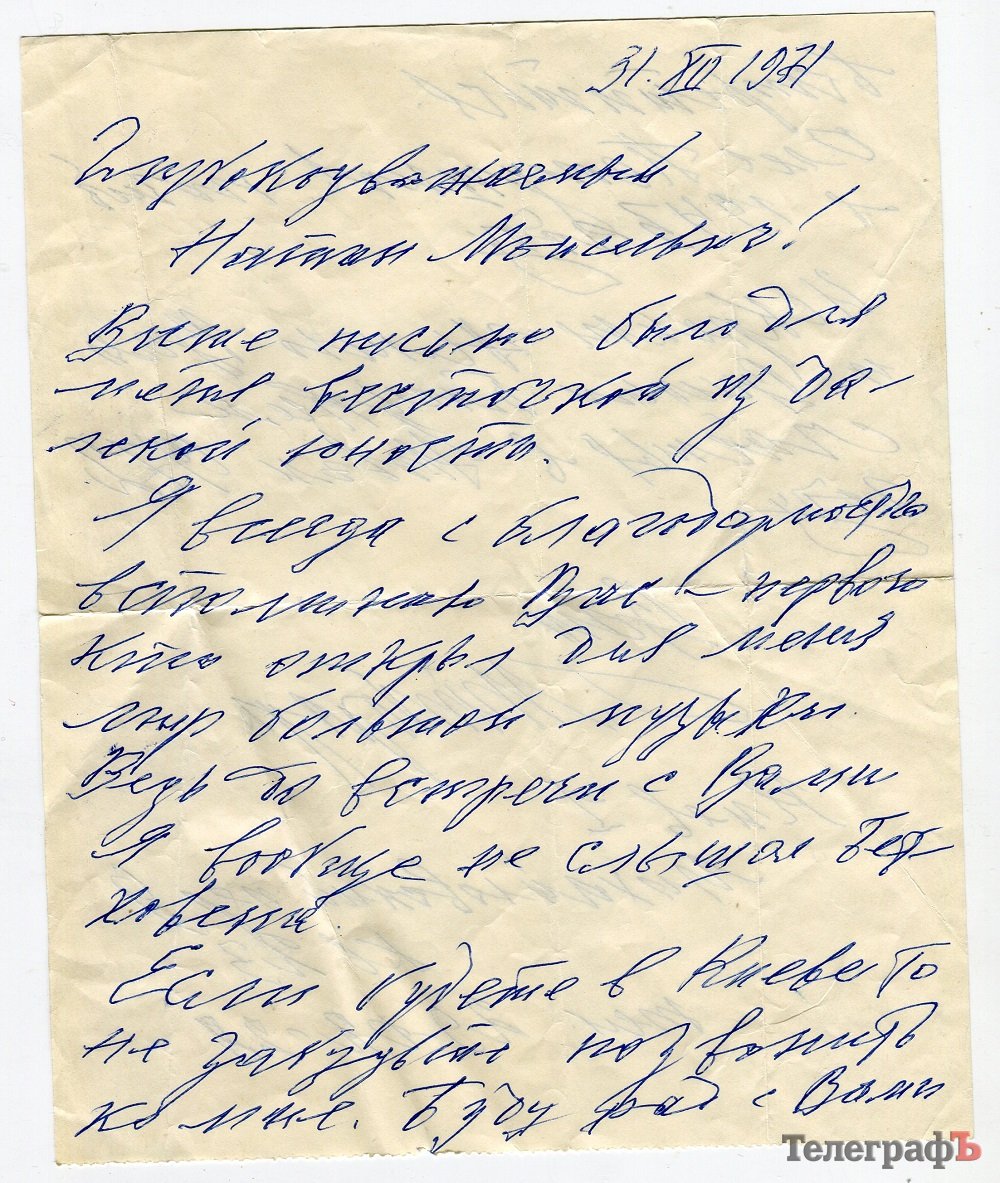 31.XII 1971
Глубокоуважаемый
Натан Моисеевич!
Ваше письмо было для
меня весточкой из да-
лекой юности.
Я всегда с благодарностью
вспоминаю Вас – первого
кто открыл для меня
мир большой музыки.
Ведь до встречи с Вами
я вообще не слышал Бет-
ховена
Если будете в Киеве то
не забудьте позвонить
ко мне. Буду рад с Вами
ТелеграфЪ